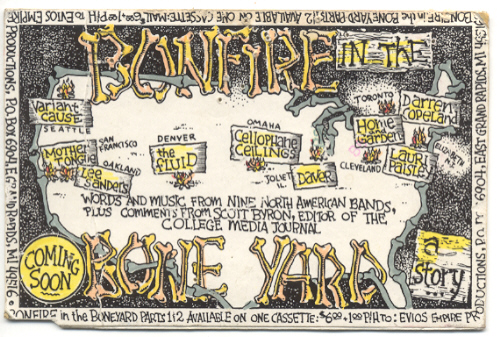 BONFIRE in the BONEYARD PARTS 1+2 AVAILABLE ON ONE CASSETTE
P/H TO EVIOS EMPIRE
PRODUCTIONS, P.O. BOX 6904,
RAPIDS, MI 49516
BONFIRE
IN THE
variant cause
SEATTLE
Mother tongue
SAN FRANCISCO
OAKLAND
Lee Sanders
DENVER
the fluid
OMAHA
Cellophane ceilings
JOLIET IL.
Daver
TORONTO
Darren Copeland
Home Garden
CLEVELAND
ELIZABETH
WORDS AND MUSIC FROM NINE NORTH AMERICAN BANDS,
PLUS COMMENTS FROM SCOTT BYRON, EDITOR OF THE
COLLEGE MEDIA JOURNAL
COMING SOON
BONE YARD
a story
BONFIRE in the BONEYARD PARTS 1+2 AVAILABLE ON ONE CASSETTE: $6.00 + 1.00 P/H TO: EVIOS EMPIRE PRODUCTIONS, P.O.
6904, EAST GRAND RAPIDS, MI